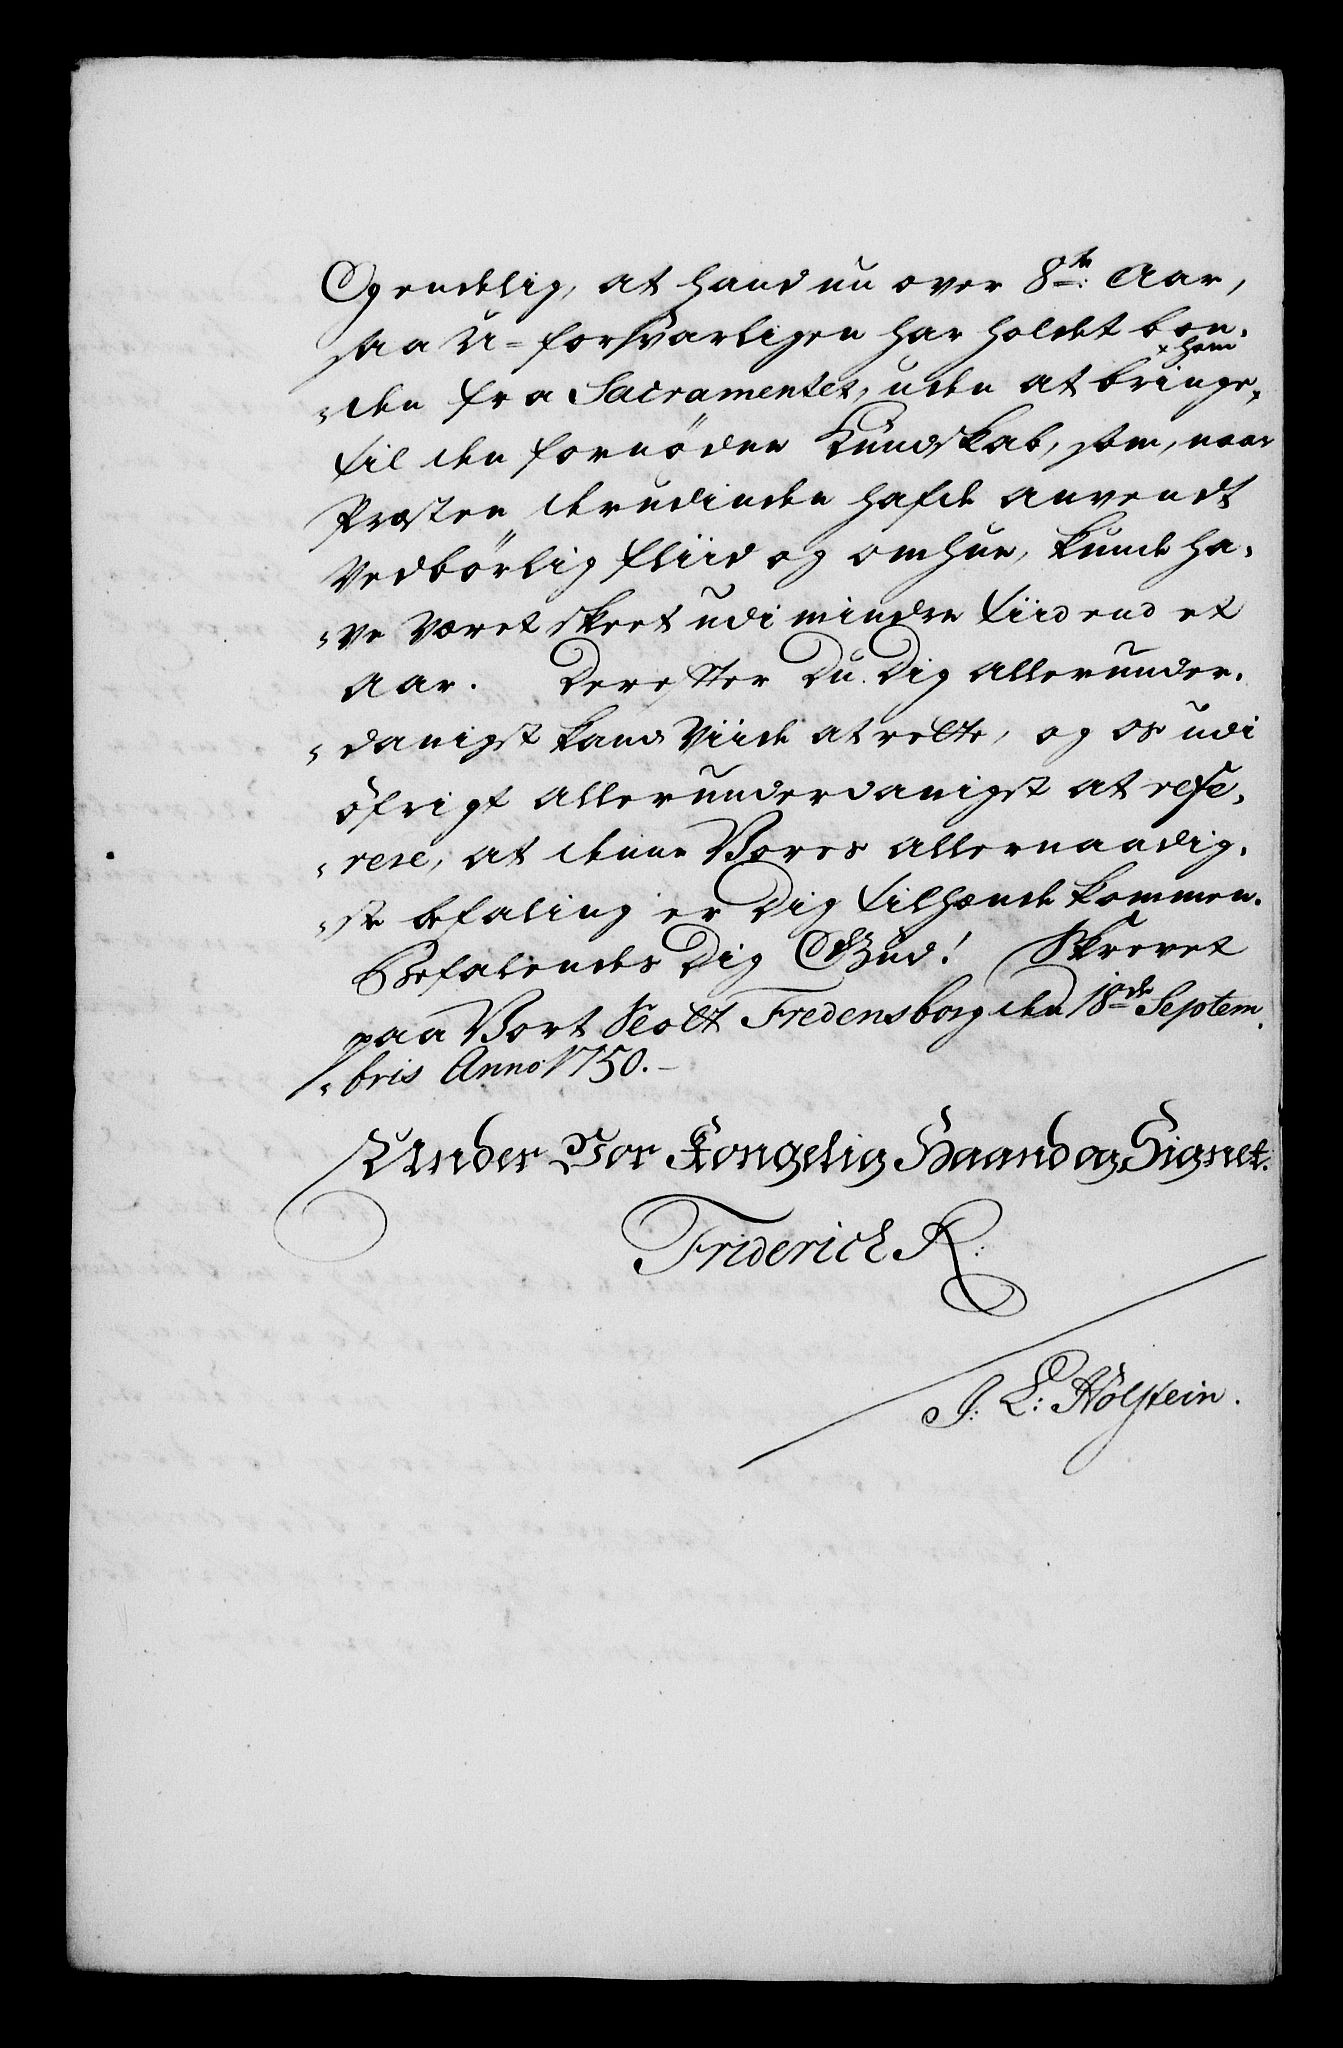 Og endelig, at hand nu over 8te: Aar,
saa U-forsvarligen har holdet bon-
-den fra Sacramentet, uden at bringe x ham
til den fornöden Kundskab, som, naar
Præsten derudinden hafde anvendt
Vedbörlig fliid og omhue, kunde ha-
-ve været skeet udi mindre tiid end et
Aar. Derefter Du Dig allerunder-
-danigst kand viide at rette, og os udi
öfrigt allerunderdanigst at refe-
-rere, at denne Vores allernaadig-
-ste befaling er Dig tilhænde kommen.
Befalendes Dig Gud! Skrevet
paa Vort Slott Fredensborg den 18de Septem-
-bris Anno 1750.-
Under Vor Kongelig Haand og Signet.
Friderich R:
J: L: Holstein.